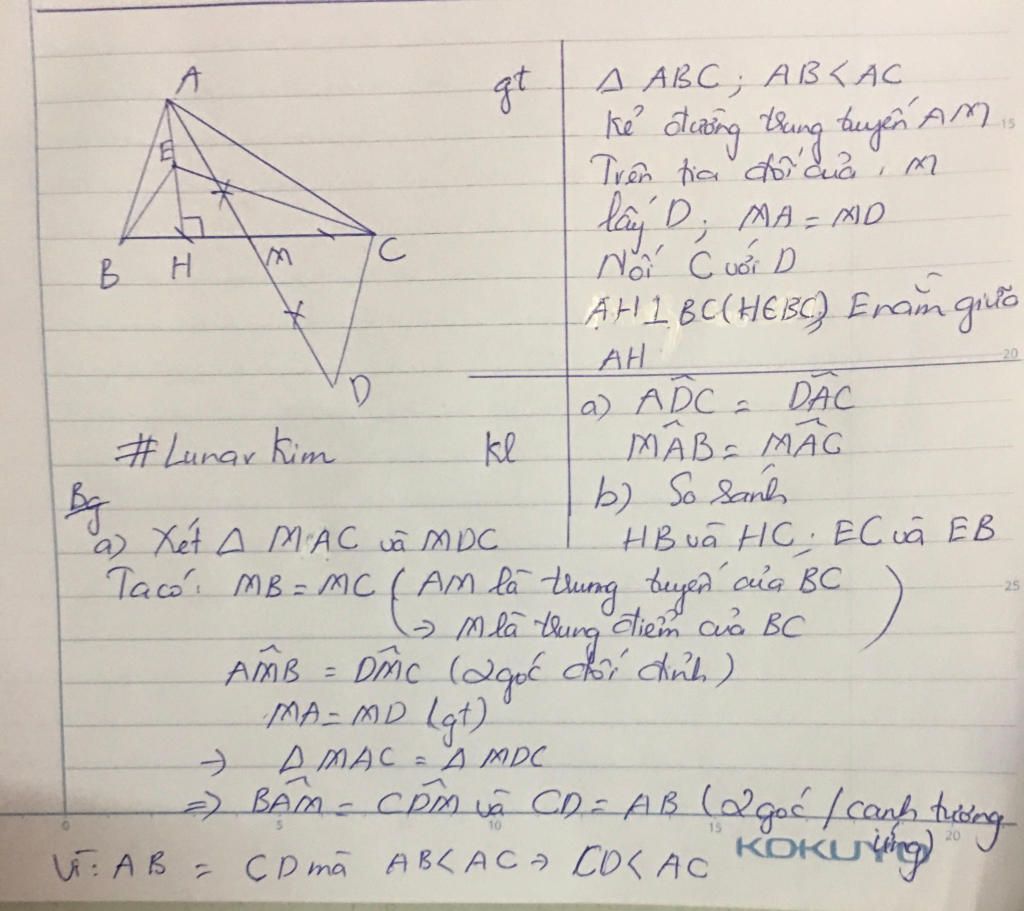 A
E
B
H
M
C
D
gt
Δ ABC ; AB < AC
Kẻ đường trung tuyến AM
Trên tia đối của , M
lấy D ; MA = MD
Nối C với D
AH ⊥ BC (H ∈ BC) ; E nằm giữa
AH
15
20
#Lunar Kim
kl
a) \widehat{ADC} = \widehat{DAC}
\widehat{MAB} = \widehat{MAC}
b) So sánh
HB và HC ; EC và EB
Bg
a) Xét Δ MAC và MDC
Ta có : MB = MC ( AM là trung tuyến của BC
→ M là trung điểm của BC )
25
\widehat{AMB} = \widehat{DMC} (2 góc đối đỉnh)
MA = MD (gt)
→ Δ MAC = Δ MDC
=> \widehat{BAM} = \widehat{CDM} và CD = AB (2 góc / cạnh tương
ứng)
0 5 10 15 20
KOKUYO
Vì : AB = CD mà AB < AC → CD < AC